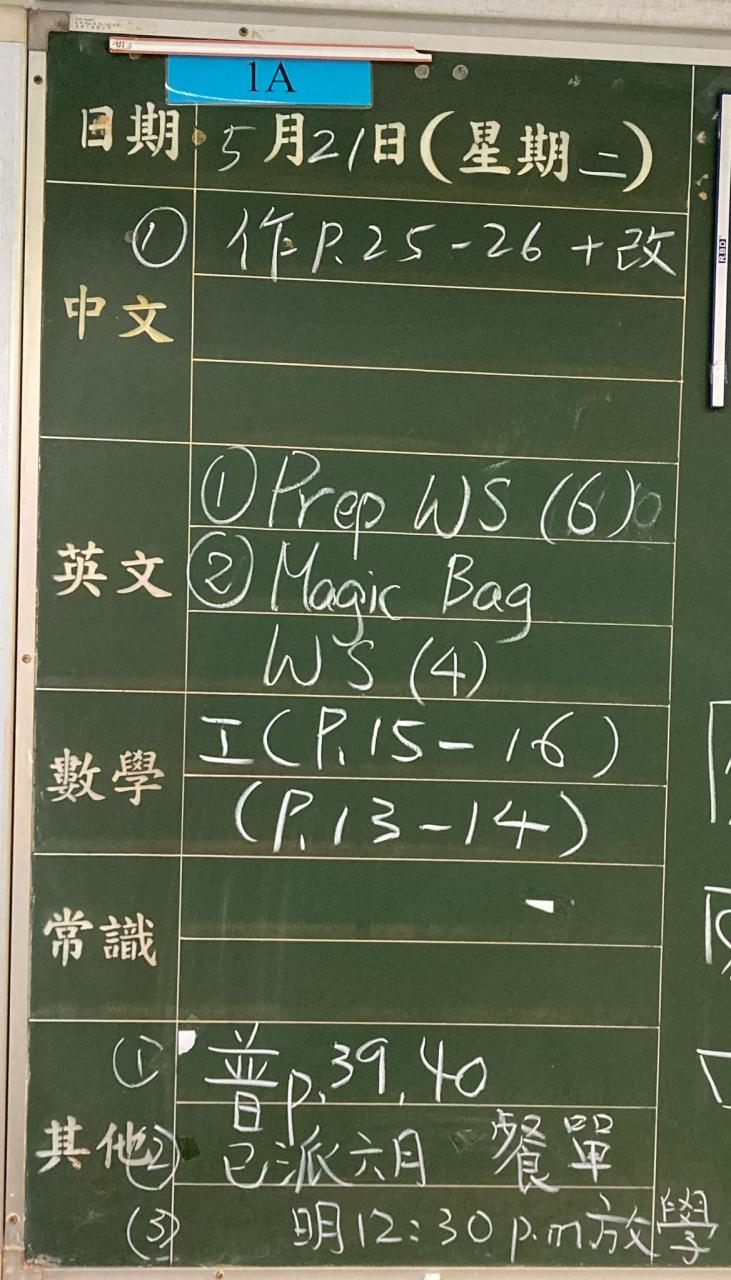 1A
日期 5月21日(星期二)
① 作P.25-26+改
中文
① Prep WS (6)
英文 ② Magic Bag
WS (4)
數學 工(P.15-16)
(P.13-14)
常識
① 普p.39,40
其他 ② 已派六月 餐單
(3) 明12:30 p.m放學